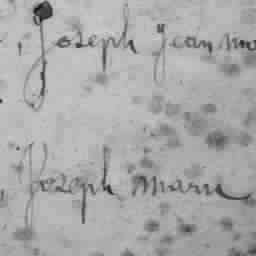 Joseph Jean Ma
Joseph Marie